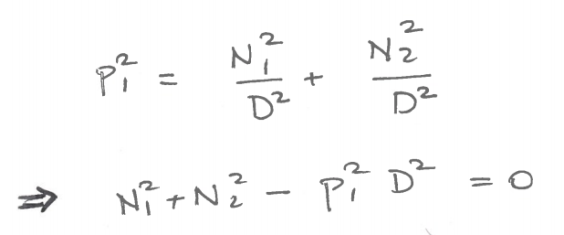 P₁² = N₁²/D² + N₂²/D²
⇒ N₁² + N₂² − P₁² D² = 0